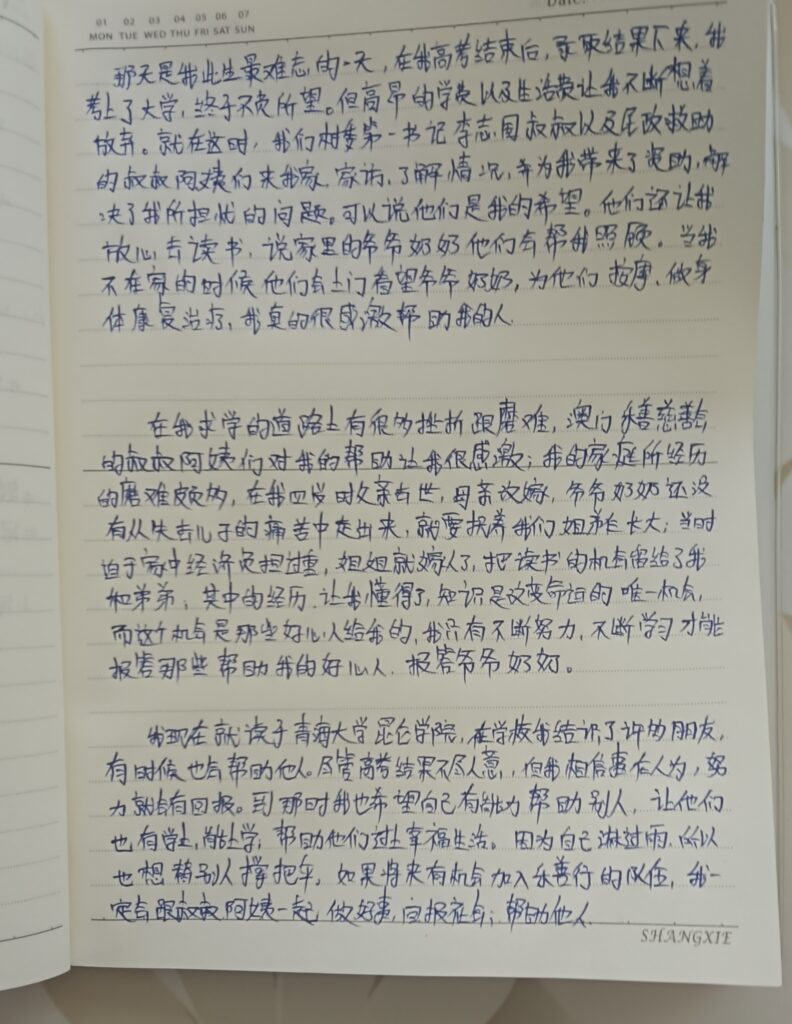 01 02 03 04 05 06 07
MON TUE WED THU FRI SAT SUN
Date:
那天是我此生最难忘的一天，在我高考结束后，录取结果下来，我
考上了大学，终于不负所望。但高昂的学费以及生活费让我不断想着
放弃。就在这时，我们村委第一书记李志国叔叔以及民政救助
的叔叔阿姨们来我家，家访，了解情况，并为我带来了资助，解
决了我所担忧的问题。可以说他们是我的希望。他们还让我
放心去读书，说家里的爷爷奶奶他们会帮我照顾。当我
不在家的时候他们会上门看望爷爷奶奶，为他们按摩、做身
体康复治疗，我真的很感激帮助我的人
在我求学的道路上有很多挫折跟磨难，澳门乐善慈善会
的叔叔阿姨们对我的帮助让我很感激；我的家庭所经历
的磨难颇多，在我四岁时父亲去世，母亲改嫁，爷爷奶奶还没
有从失去儿子的痛苦中走出来，就要抚养我们姐弟长大；当时
迫于家中经济负担过重，姐姐就嫁人了，把读书的机会留给了我
和弟弟；其中的经历，让我懂得了，知识是改变命运的唯一机会，
而这个机会是那些好心人给我的，我只有不断努力，不断学习才能
报答那些帮助我的好心人，报答爷爷奶奶。
我现在就读于青海大学昆仑学院，在学校我结识了许多朋友，
有时候也会帮助他人。尽管高考结果不尽人意，但我相信事在人为，努
力就会有回报。到那时我也希望自己有能力帮助别人，让他们
也有学上，能上学，帮助他们过上幸福生活。因为自己淋过雨，所以
也想替别人撑把伞，如果将来有机会加入乐善行的队伍，我一
定会跟叔叔阿姨一起，做好事，回报社会；帮助他人
SHANGXIE